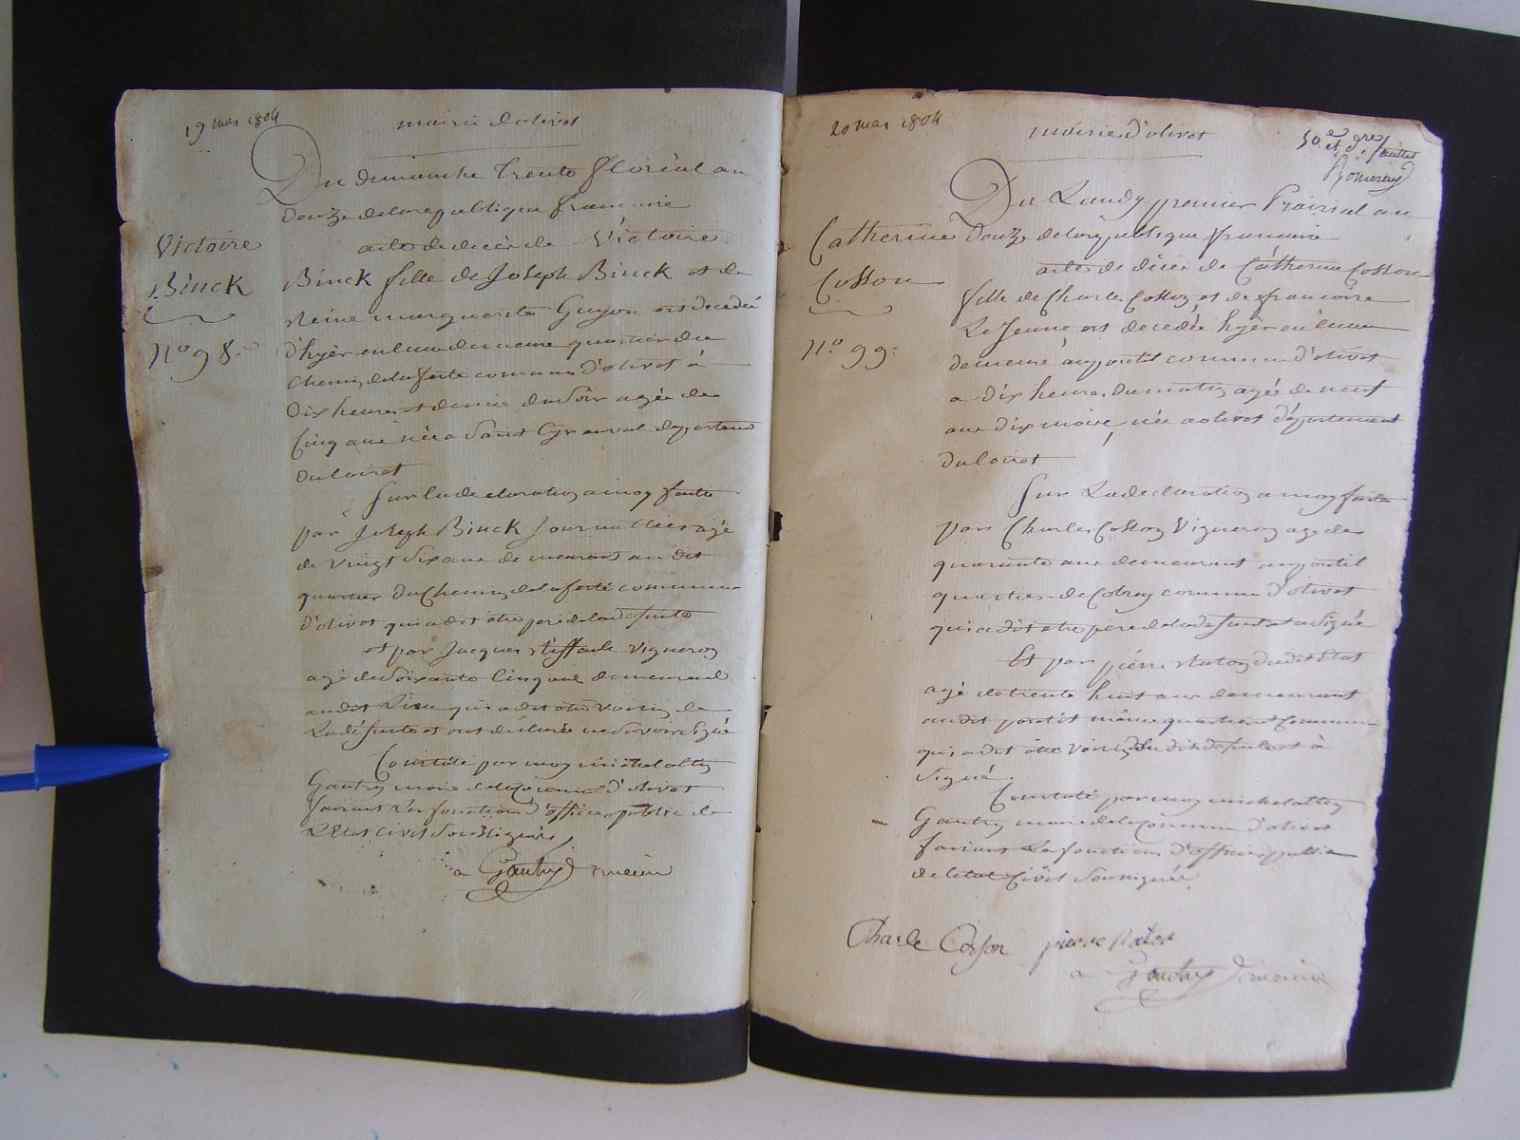 19 mai 1804
mairie d'olivet
Du dimanche trente floréal an
Douze de la republique francaise
Victoire
Binck
n.º 98.
acte de decès de Victoire
Binck fille de Joseph Binck et de
Reine marguerite Guyon est decedeé
d'hyèr en leur demeure quartier du
Chemin de la ferté commune d'olivet à
Dix heures et demie du Soir agée de
Cinq ans née a Saint Cyr en val departement
du loiret
Sur la declaration a moy faite
par Joseph Binck Journallier agé
de Vingt Six ans demeurant au dit
quartier du Chemin de la ferté commune
d'olivet qui a dit être pere de la defunte
et par Jacques Vigneron
agé de Soixante Cinq ans demeurant
au dit Lieu qui a dit être voisin de
La défunte et ont declarée ne Savoir Signé
Constaté par moy michel altin
Gautry maire de la Commune d'olivet
faisant Les fonctions d'officier public de
L'Etat Civil Soussigné
a Gautry maire
20 mai 1804
mairie d'olivet
50.e et feuillet
Du Lundy premier Prairial an
Catherine
Cosson
n.º 99.
Douze de la republique francaise
acte de décès de Cathérine Cosson
fille de Charles Cosson et de francoise
Le Jeune est decedée hyèr en leur
demeure au poutil commune d'olivet
a dix heures du matin agée de neuf
ans dix mois, née a olivet département
du loiret
Sur La declaration a moy faite
par Charles Cosson Vigneron age de
quarante ans demeurant au poutil
quartier de commune d'olivet
qui a dit etre pere de la defunte et a Signé
Et par pierre du dit état
agé de trente huit ans demeurant
au dit poutil même quartier et Commune
qui a dit être voisin du dit defunte et à
Signé.
Constaté par moy michel altin
Gautry maire de la Commune d'olivet
faisant Les fonctions d'officier public
de l'etat Civil Soussigné.
Charle Cosson pierre
a Gautry maire